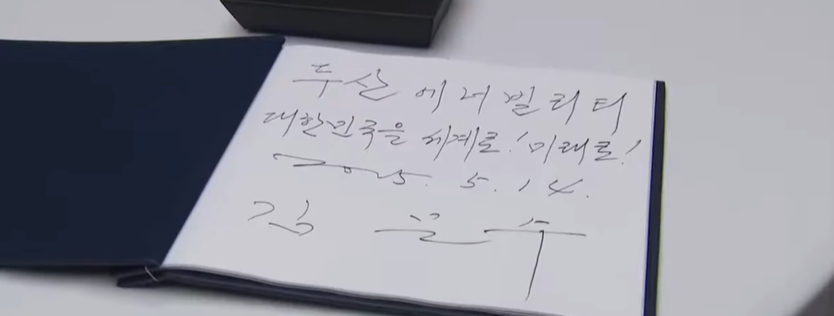 두산 에너빌리티
대한민국을 세계로! 미래로!
2025. 5. 14.
김 문 수